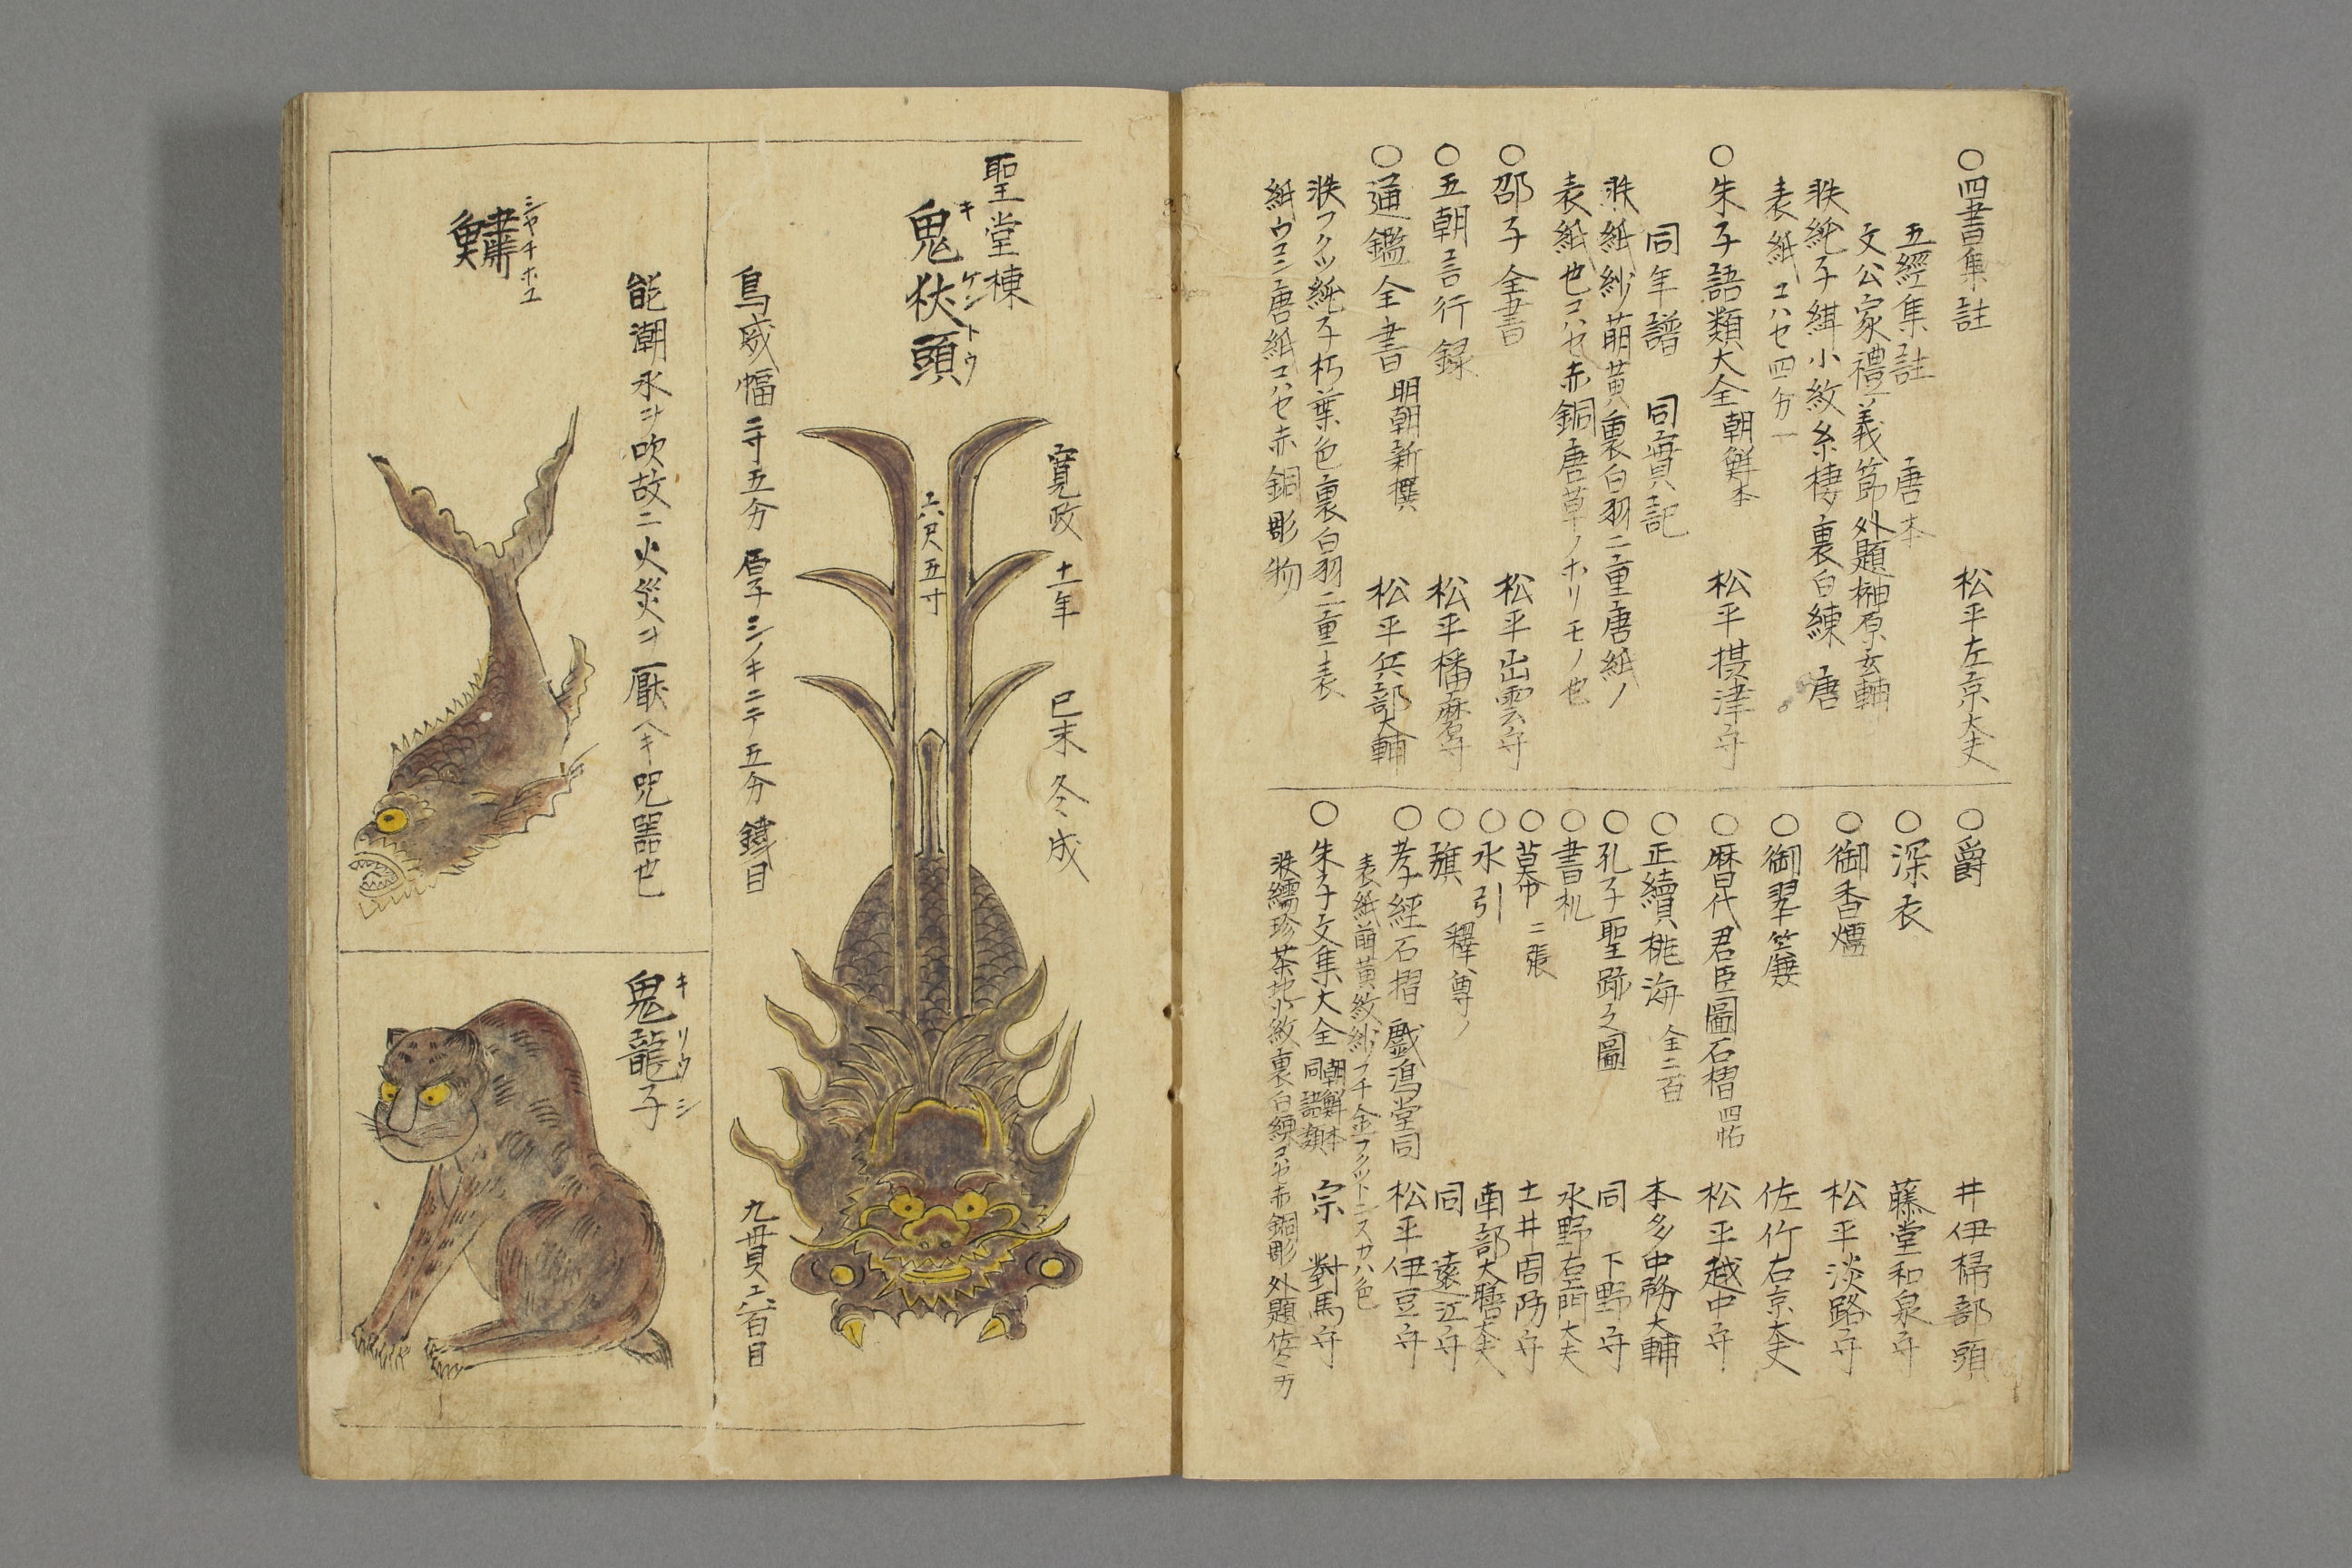 ○四書集註 松平左京大夫
五經集註 唐本
文公家禮義節 外題榊原玄輔
帙純子緋小紋糸棲裏白練 唐
表紙コハセ四分一
○朱子語類大全 朝鮮本 松平摂津守
同年譜 同實記
帙紙紗萌黄裏白羽二重唐紙ノ
表紙也コハセ赤銅唐草ノホリモノ也
○邵子全書 松平出雲守
○五朝言行録 松平播磨守
○通鑑全書 明朝新撰 松平兵部大輔
帙フクツ純子朽葉色裏白羽二重表
紙ウコン唐紙コハセ赤銅彫物
○爵 井伊掃部頭
○深衣 藤堂和泉守
○御香爐 松平淡路守
○御翠簾 佐竹右京大夫
○暦代君臣圖石摺 四帖 松平越中守
○正續桃海 全二百 本多中務大輔
○孔子聖跡之圖 同 下野守
○書机 水野右エ門大夫
○莫巾 二張 土井周防守
○水引 南部大膳大夫
○旗 釋尊ノ 同 遠江守
○孝經石摺 戯鴻堂同 松平伊豆守
表紙萌黄紋紗フチ金フクツトンスカハ色
○朱子文集大全 朝鮮本 同語類 宗 對馬守
帙繻珍茶地小紋裏白練コハセ赤銅彫 外題佐々万
聖堂棟
鬼狄頭
キ ケントウ
寛政十一年 己未冬成
六尺五寸
鳥威幅二寸五分 厚子シノキニテ五分 鐵目
九貫六百目
鱐
シヤチホコ
能潮水ヲ吹故ニ火災ヲ厭ヘキ呪器也
鬼龍子
キリウシ